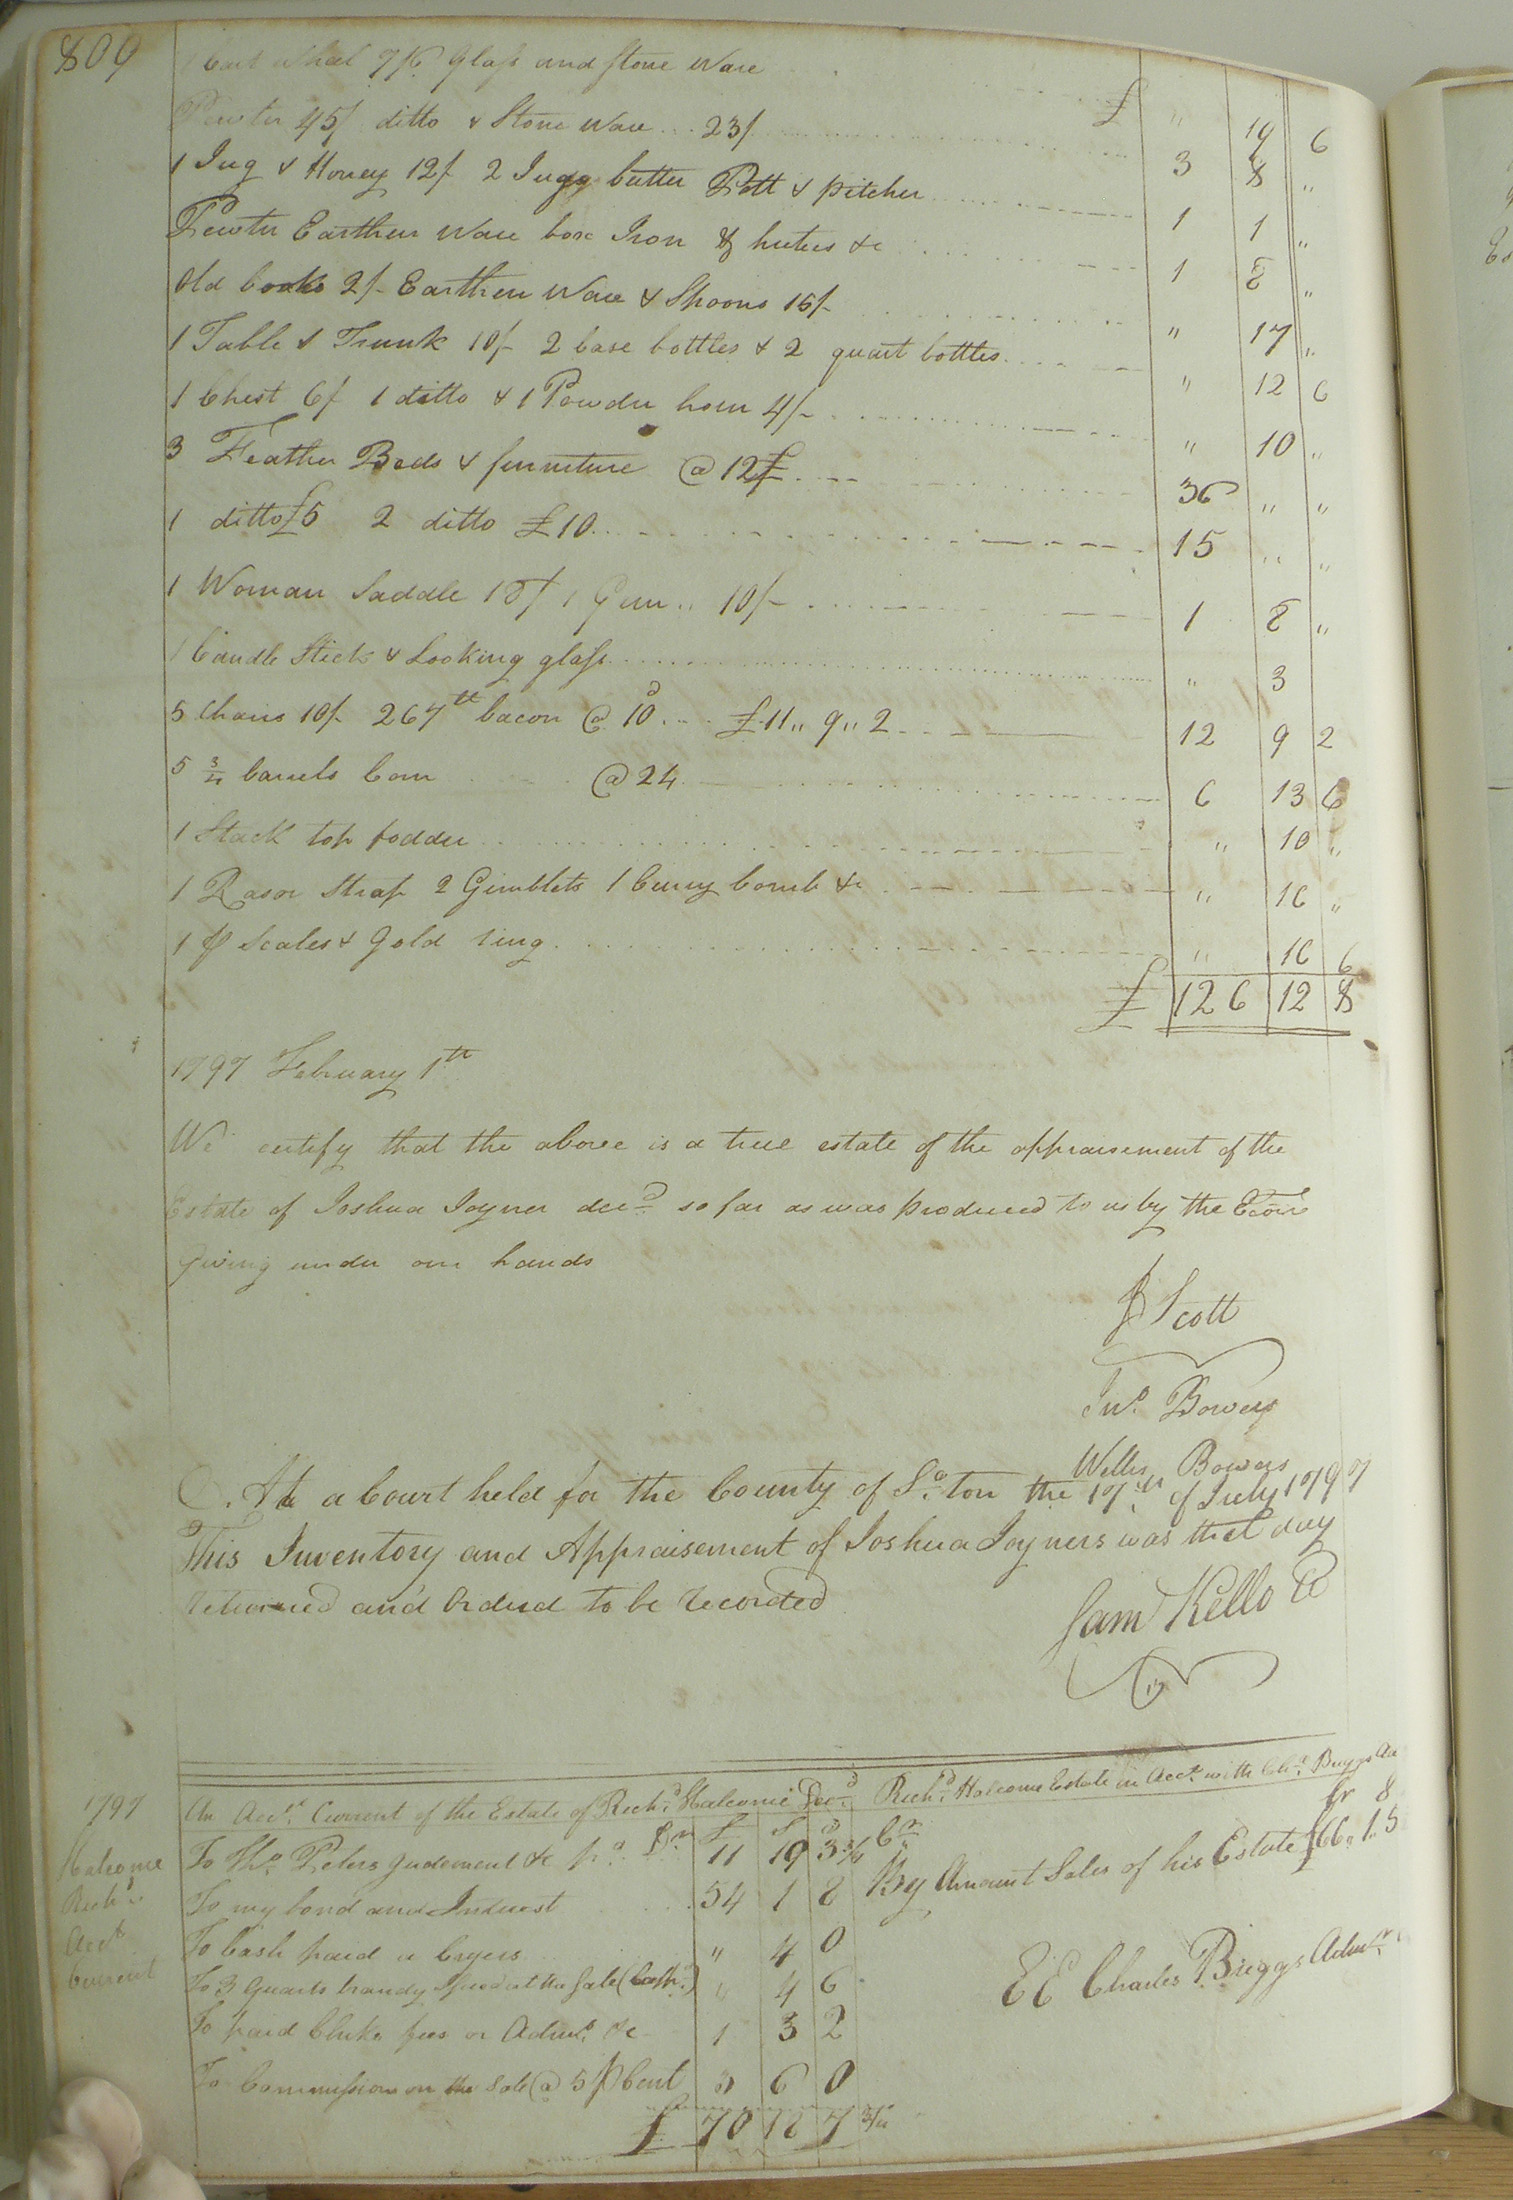 809
1 Cart wheel 7/6 Glass and Stone Ware £ " 19 6
Pewter 45/ ditto & Stone Ware 23/ 3 8 "
1 Jug & Honey 12/ 2 Juggs butter Pott & pitcher 1 1 "
Pewter Earthen Ware box Iron & heters &c 1 8 "
Old books 2/- Earthen Ware & Spoons 15/- " 17 "
1 Table & Trunk 10/- 2 base bottles & 2 quart bottles " 12 6
1 Chest 6/ 1 ditto & 1 Powder horn 4/- " 10 "
3 Feather Beds & furniture @ 12£ 36 " "
1 ditto £5 2 ditto £10 15 " "
1 Woman Saddle 18/ 1 Gun 10/- 1 8 "
1 Candle Stick & Looking glass " 3
5 Chairs 10/- 267 tt bacon @ 10d £11 " 9 " 2 12 9 2
5 3/4 barrels Corn @ 24 6 13 6
1 Stack top fodder " 10 "
1 Rasor Strap 2 Gimblets 1 Curry Comb &c " 16 "
1 p Scales & Gold ring " 16 6
£ 126 12 8
1797 February 1th
We certify that the above is a true estate of the appraisement of the
Estate of Joshua Joyner decd. so far as was produced to us by the Exors
giving under our hands
J Scott
Jno. Bowers
Wellis Bowers
At a Court held for the County of So.ton the 17th. of July 1797
This Inventory and Appraisement of Joshua Joyners was that day
returned and Ordered to be recorded
Sam Kello C
1797
Halcome
Richd.
Acct.
Current
An Acct. Current of the Estate of Richd. Halcome Decd.
Dr £ S d
To Tho. Peters Judement &c pd. 11 19 3 3/4
To my bond and Interest 54 1 8
To Cash paid a Cryers " 4 0
To 3 Quarts brandy Spred at the Sale (Cash) " 4 6
To paid Clerks fees or Adms. &c 1 3 2
To Commission on the Sale @ 5 p Cent 3 6 0
£ 70 18 7 3/4
Richd. Halcome Estate in Acct. with Chs. Briggs Ad
Cr
By Amount Sales of his Estate £66 " 1 " 5
EE Charles Briggs Admr.